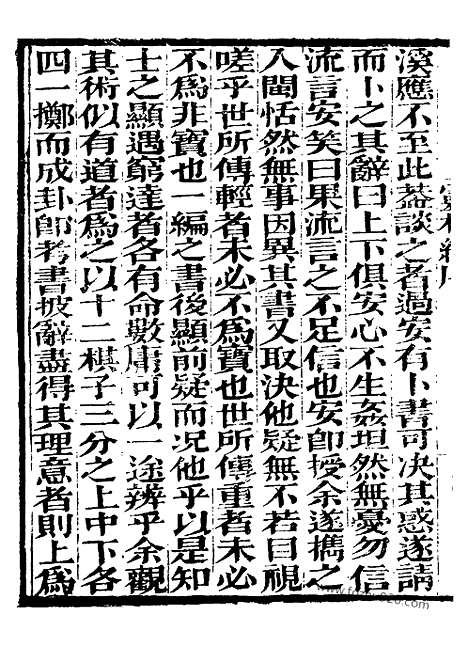 溪應不至此葢談之者過安有卜書可决其惑遂請
而卜之其辭曰上下俱安心不生姦坦然無憂勿信
流言安笑曰果流言之不足信也安卽授余遂攜之
入閩恬然無事因異其書又取決他疑無不若目視
嗟乎世所傳輕者未必不爲寶也世所傳重者未必
不爲非寶也一編之書後顯前疑而况他乎以是知
士之顯遇窮達者各有命數庸可以一途辨乎余觀
其術似有道者爲之以十二棋子三分之上中下各
四一擲而成卦卽考書披辭盡得其理意者則上爲